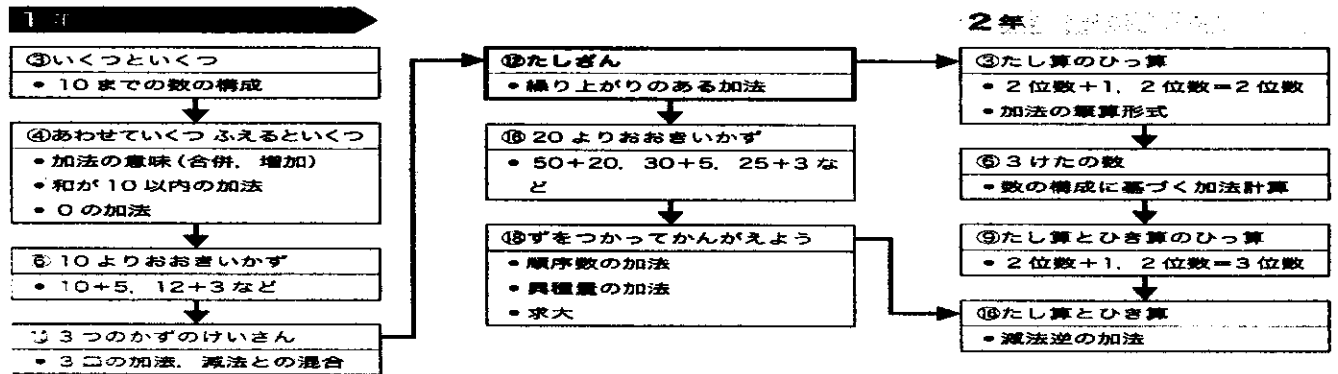 1年
③いくつといくつ
• 10までの数の構成
④あわせていくつ ふえるといくつ
• 加法の意味(合併，増加)
• 和が10以内の加法
• 0の加法
10よりおおきいかず
• 10+5，12+3など
3つのかずのけいさん
• 3口の加法，減法との混合
⑫たしざん
• 繰り上がりのある加法
⑯20よりおおきいかず
• 50+20，30+5，25+3な
ど
⑱ずをつかってかんがえよう
• 順序数の加法
• 異種量の加法
• 求大
2年
③たし算のひっ算
• 2位数+1，2位数=2位数
• 加法の筆算形式
⑥3けたの数
• 数の構成に基づく加法計算
⑨たし算とひき算のひっ算
• 2位数+1，2位数=3位数
⑯たし算とひき算
• 減法逆の加法